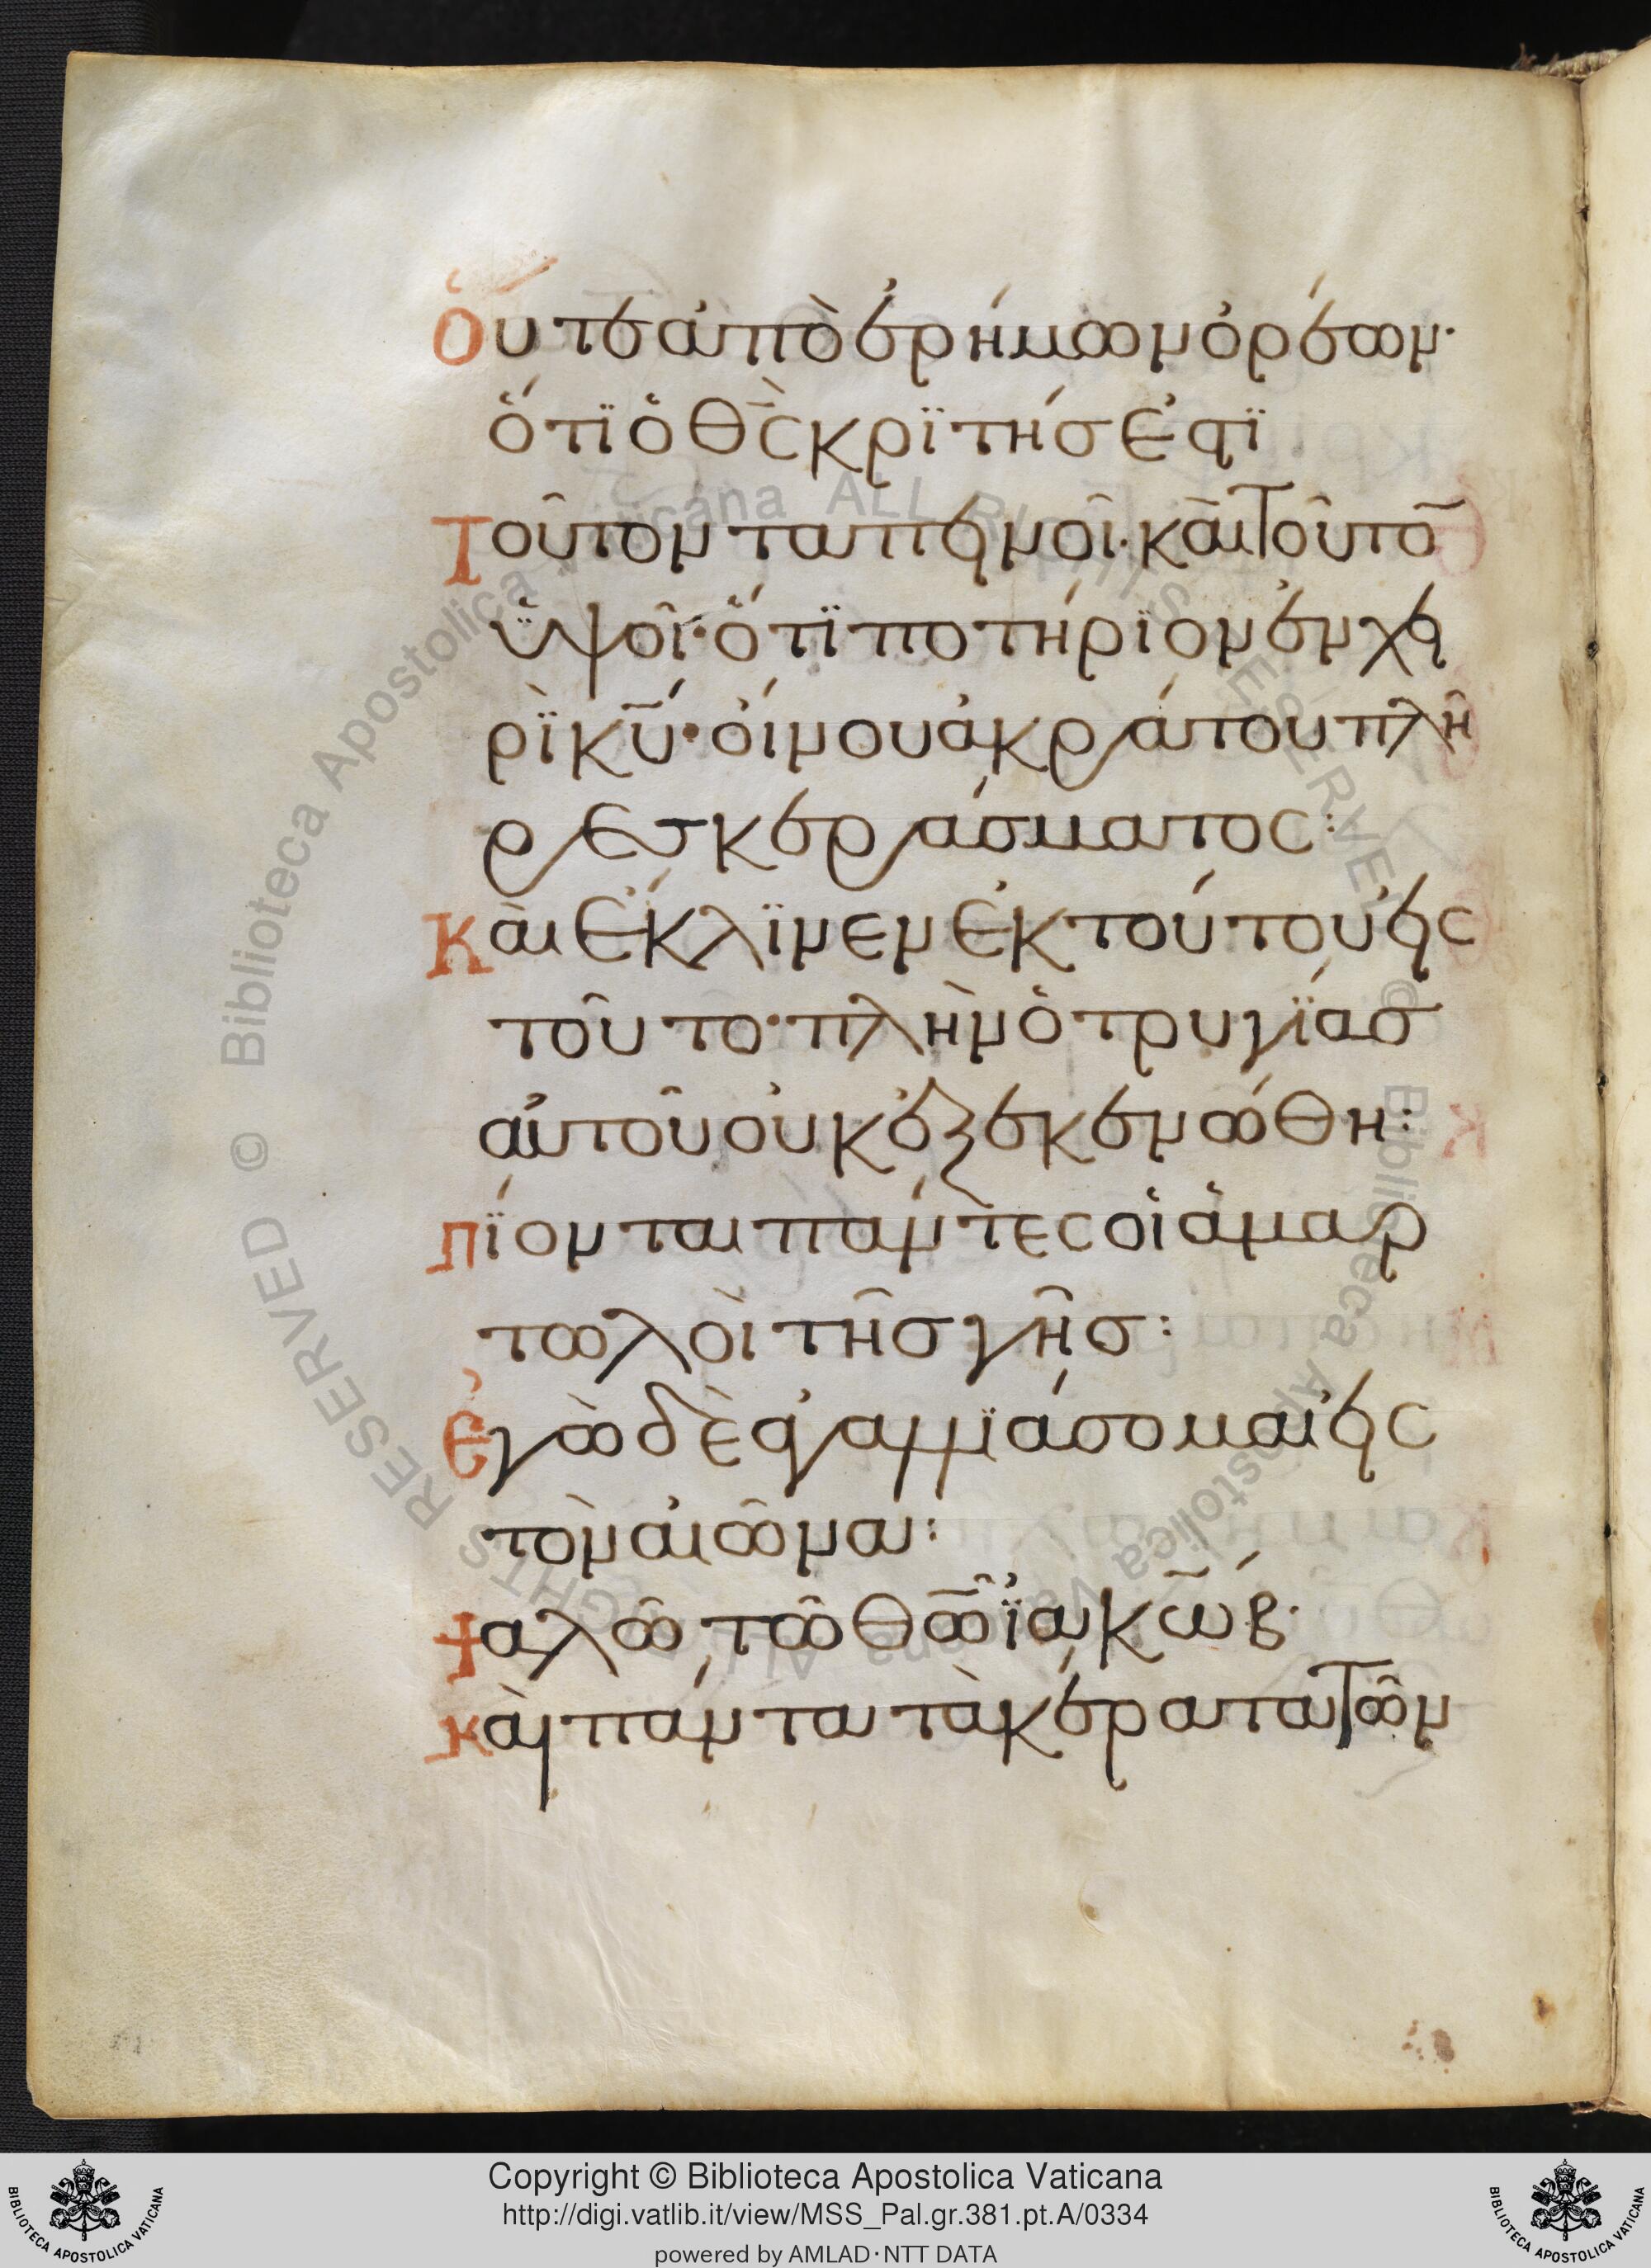 Οὔτε ἀπὸ ἐρήμων ὀρέων·
ὅτϊ ὁ θ̅ς̅ κρϊτής ἐστϊ
Τοῦτον ταπεινοῖ· καὶ τοῦτο̅
ὑψοῖ· ὅτϊ ποτήρϊον ἐν χει
ρὶ κ̅υ̅· οἴνου ἀκράτου πλῆ
ρες κεράσματος:
Καὶ ἔκλϊνεν ἐκ τούτου εἰς
τοῦτο· πλὴν ὁ τρυγίας
αὐτοῦ οὐκ ἐξεκενώθη:
πίονται πάντες οἱ ἁμαρ
τωλοὶ τῆς γῆς:
ἐγὼ δὲ ἀγαλλϊάσομαι εἰς
τὸν αἰῶνα:
ψαλῶ τῶ θ̅ω̅ ἰακώβ·
καὶ πάντα τὰ κέρατα τῶν
Biblioteca Apostolica Vaticana ALL RIGHTS RESERVED ©
Biblioteca Apostolica Vaticana ALL RIGHTS RESERVED ©
BIBLIOTECA APOSTOLICA VATICANA
Copyright © Biblioteca Apostolica Vaticana
http://digi.vatlib.it/view/MSS_Pal.gr.381.pt.A/0334
powered by AMLAD·NTT DATA
BIBLIOTECA APOSTOLICA VATICANA